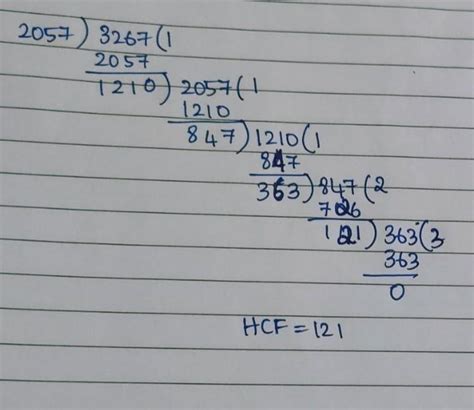 2057 ) 3267 ( 1
2057
1210 ) 2057 ( 1
1210
847 ) 1210 ( 1
847
363 ) 847 ( 2
726
121 ) 363 ( 3
363
0
HCF = 121